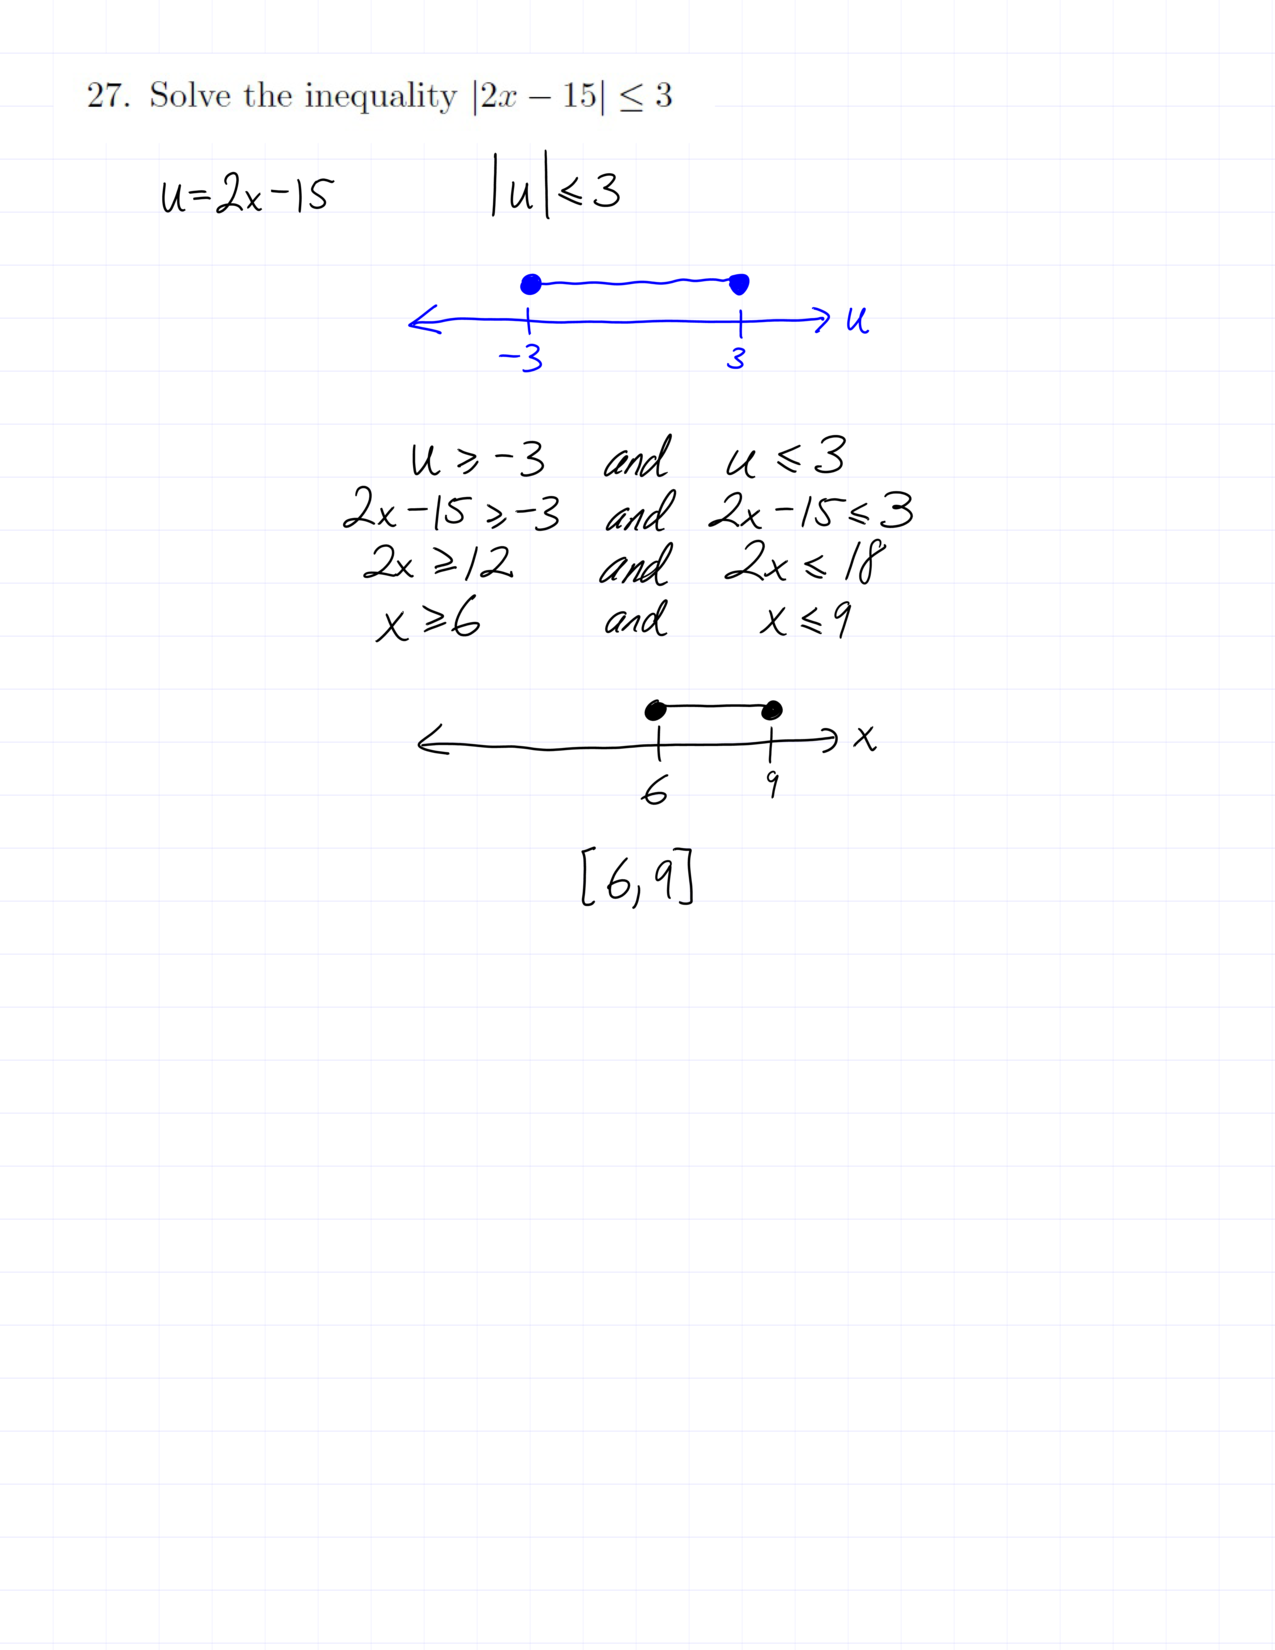 27. Solve the inequality |2x − 15| ≤ 3
u=2x-15 |u|⩽3
u
-3 3
u ⩾ -3 and u ⩽ 3
2x-15 ⩾ -3 and 2x-15 ⩽ 3
2x ⩾ 12 and 2x ⩽ 18
x ⩾ 6 and x ⩽ 9
x
6 9
[6,9]